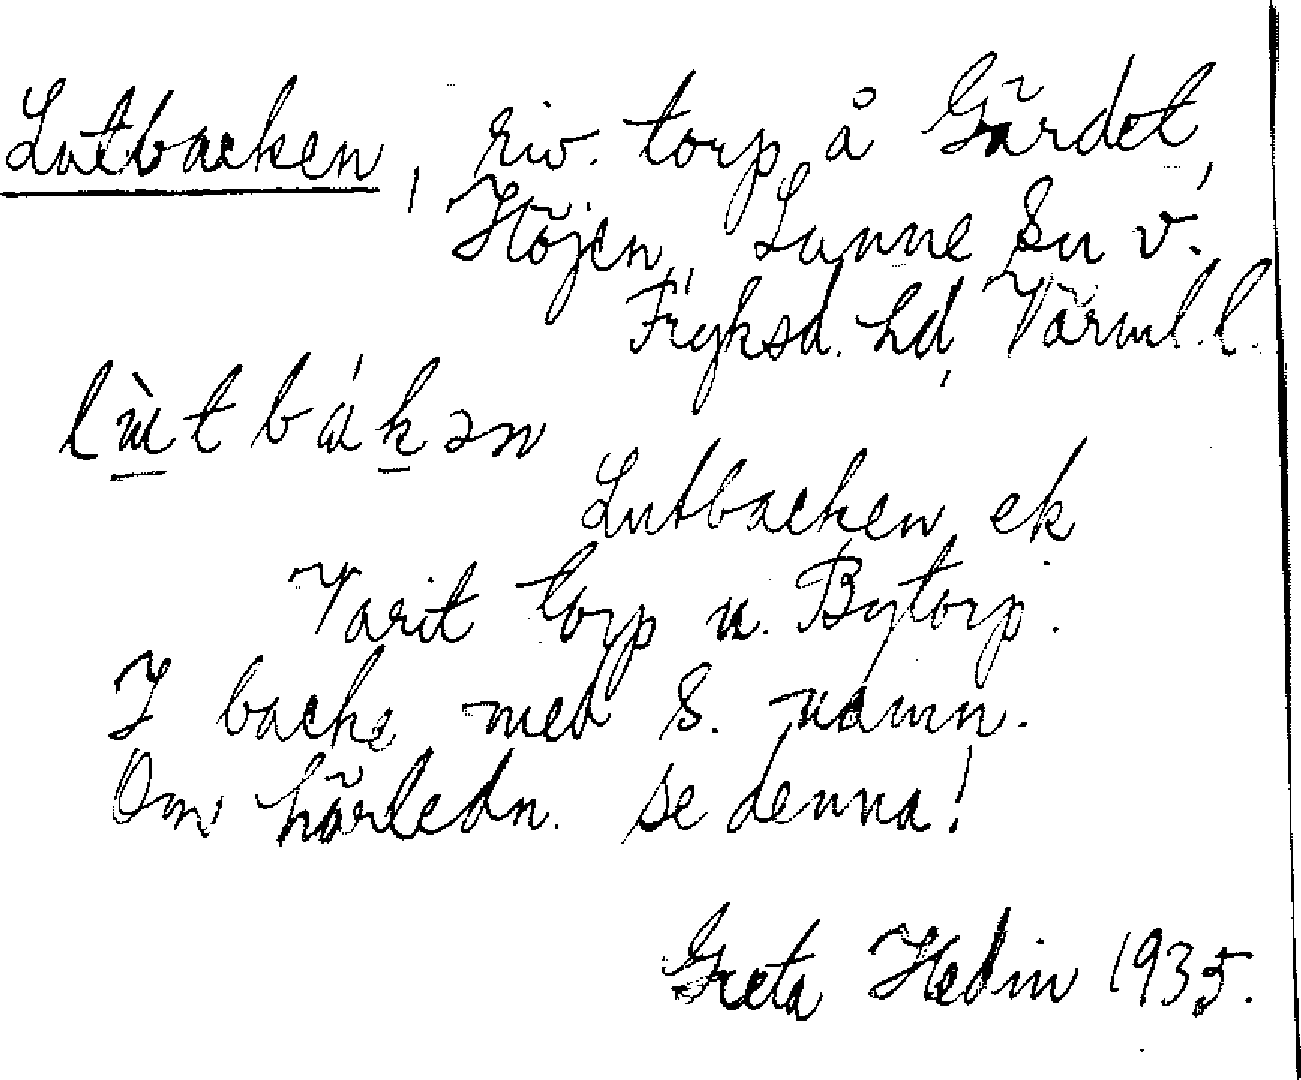 Lutbacken, riv. torp å Gärdet,
Höjen, Sunne sn v.
Fryksd. hd, Värml. l.
lùtbákən
Lutbacken ek
Varit torp u. Bytorp.
I backe med s. namn.
Om härledn. se denna!
Greta Hedin 1935.